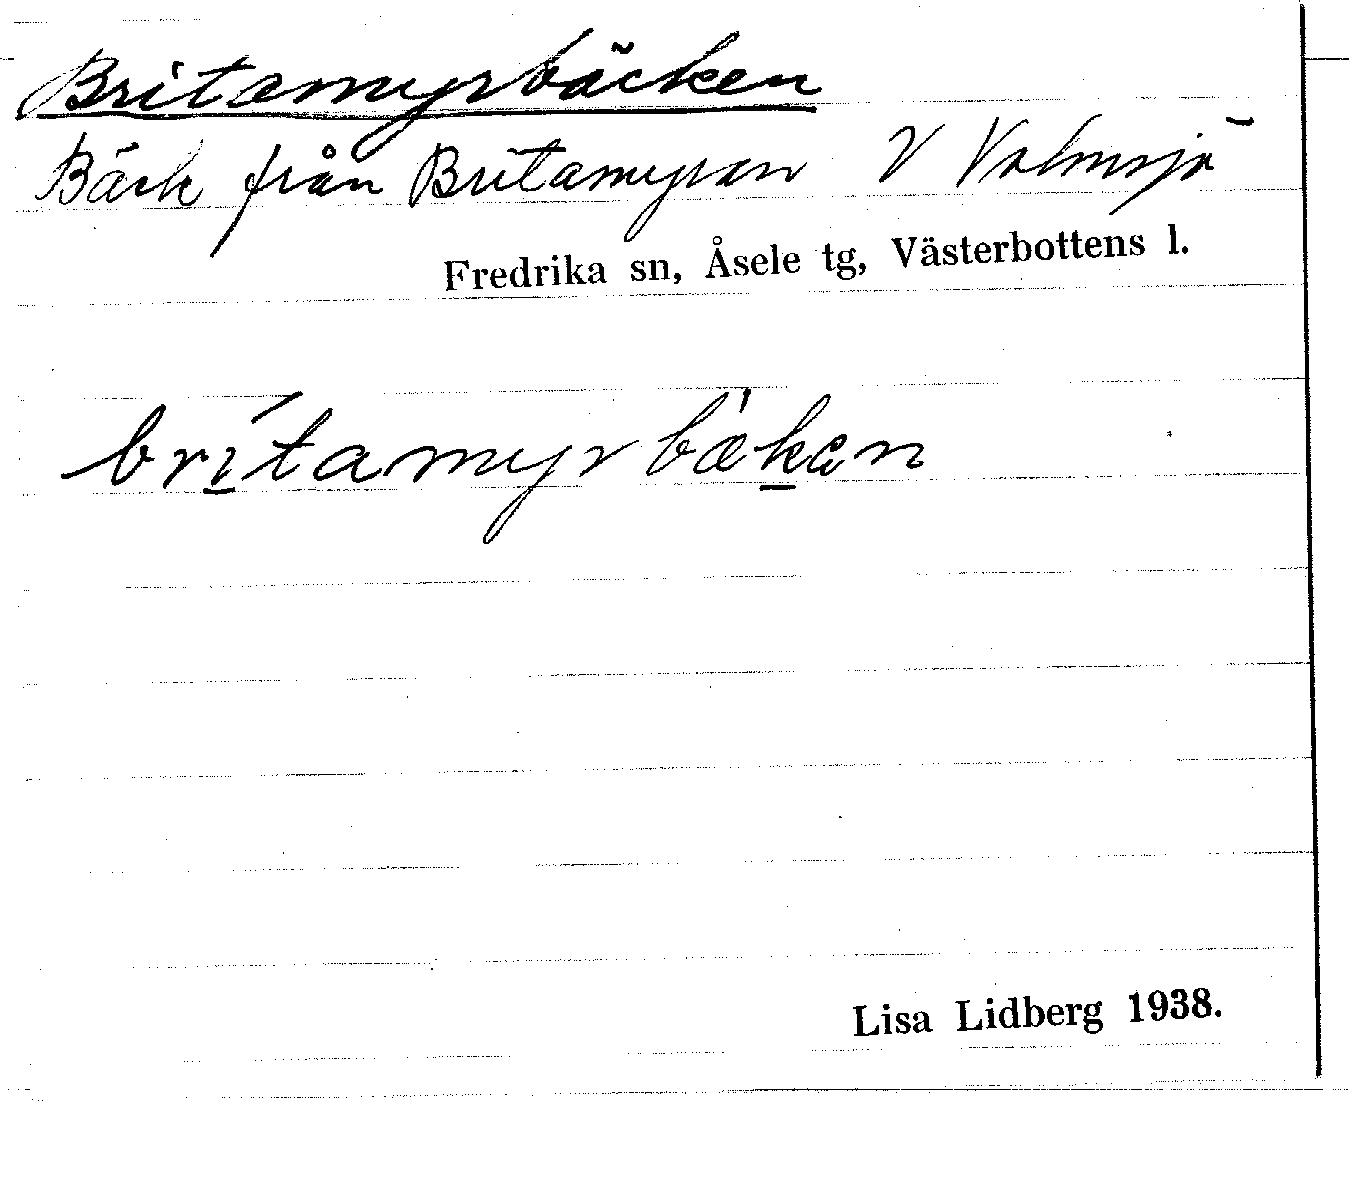 Britamyrbäcken
Bäck från Britamyran V Volmsjö
Fredrika sn, Åsele tg, Västerbottens l.
britamyrbækan
Lisa Lidberg 1938.